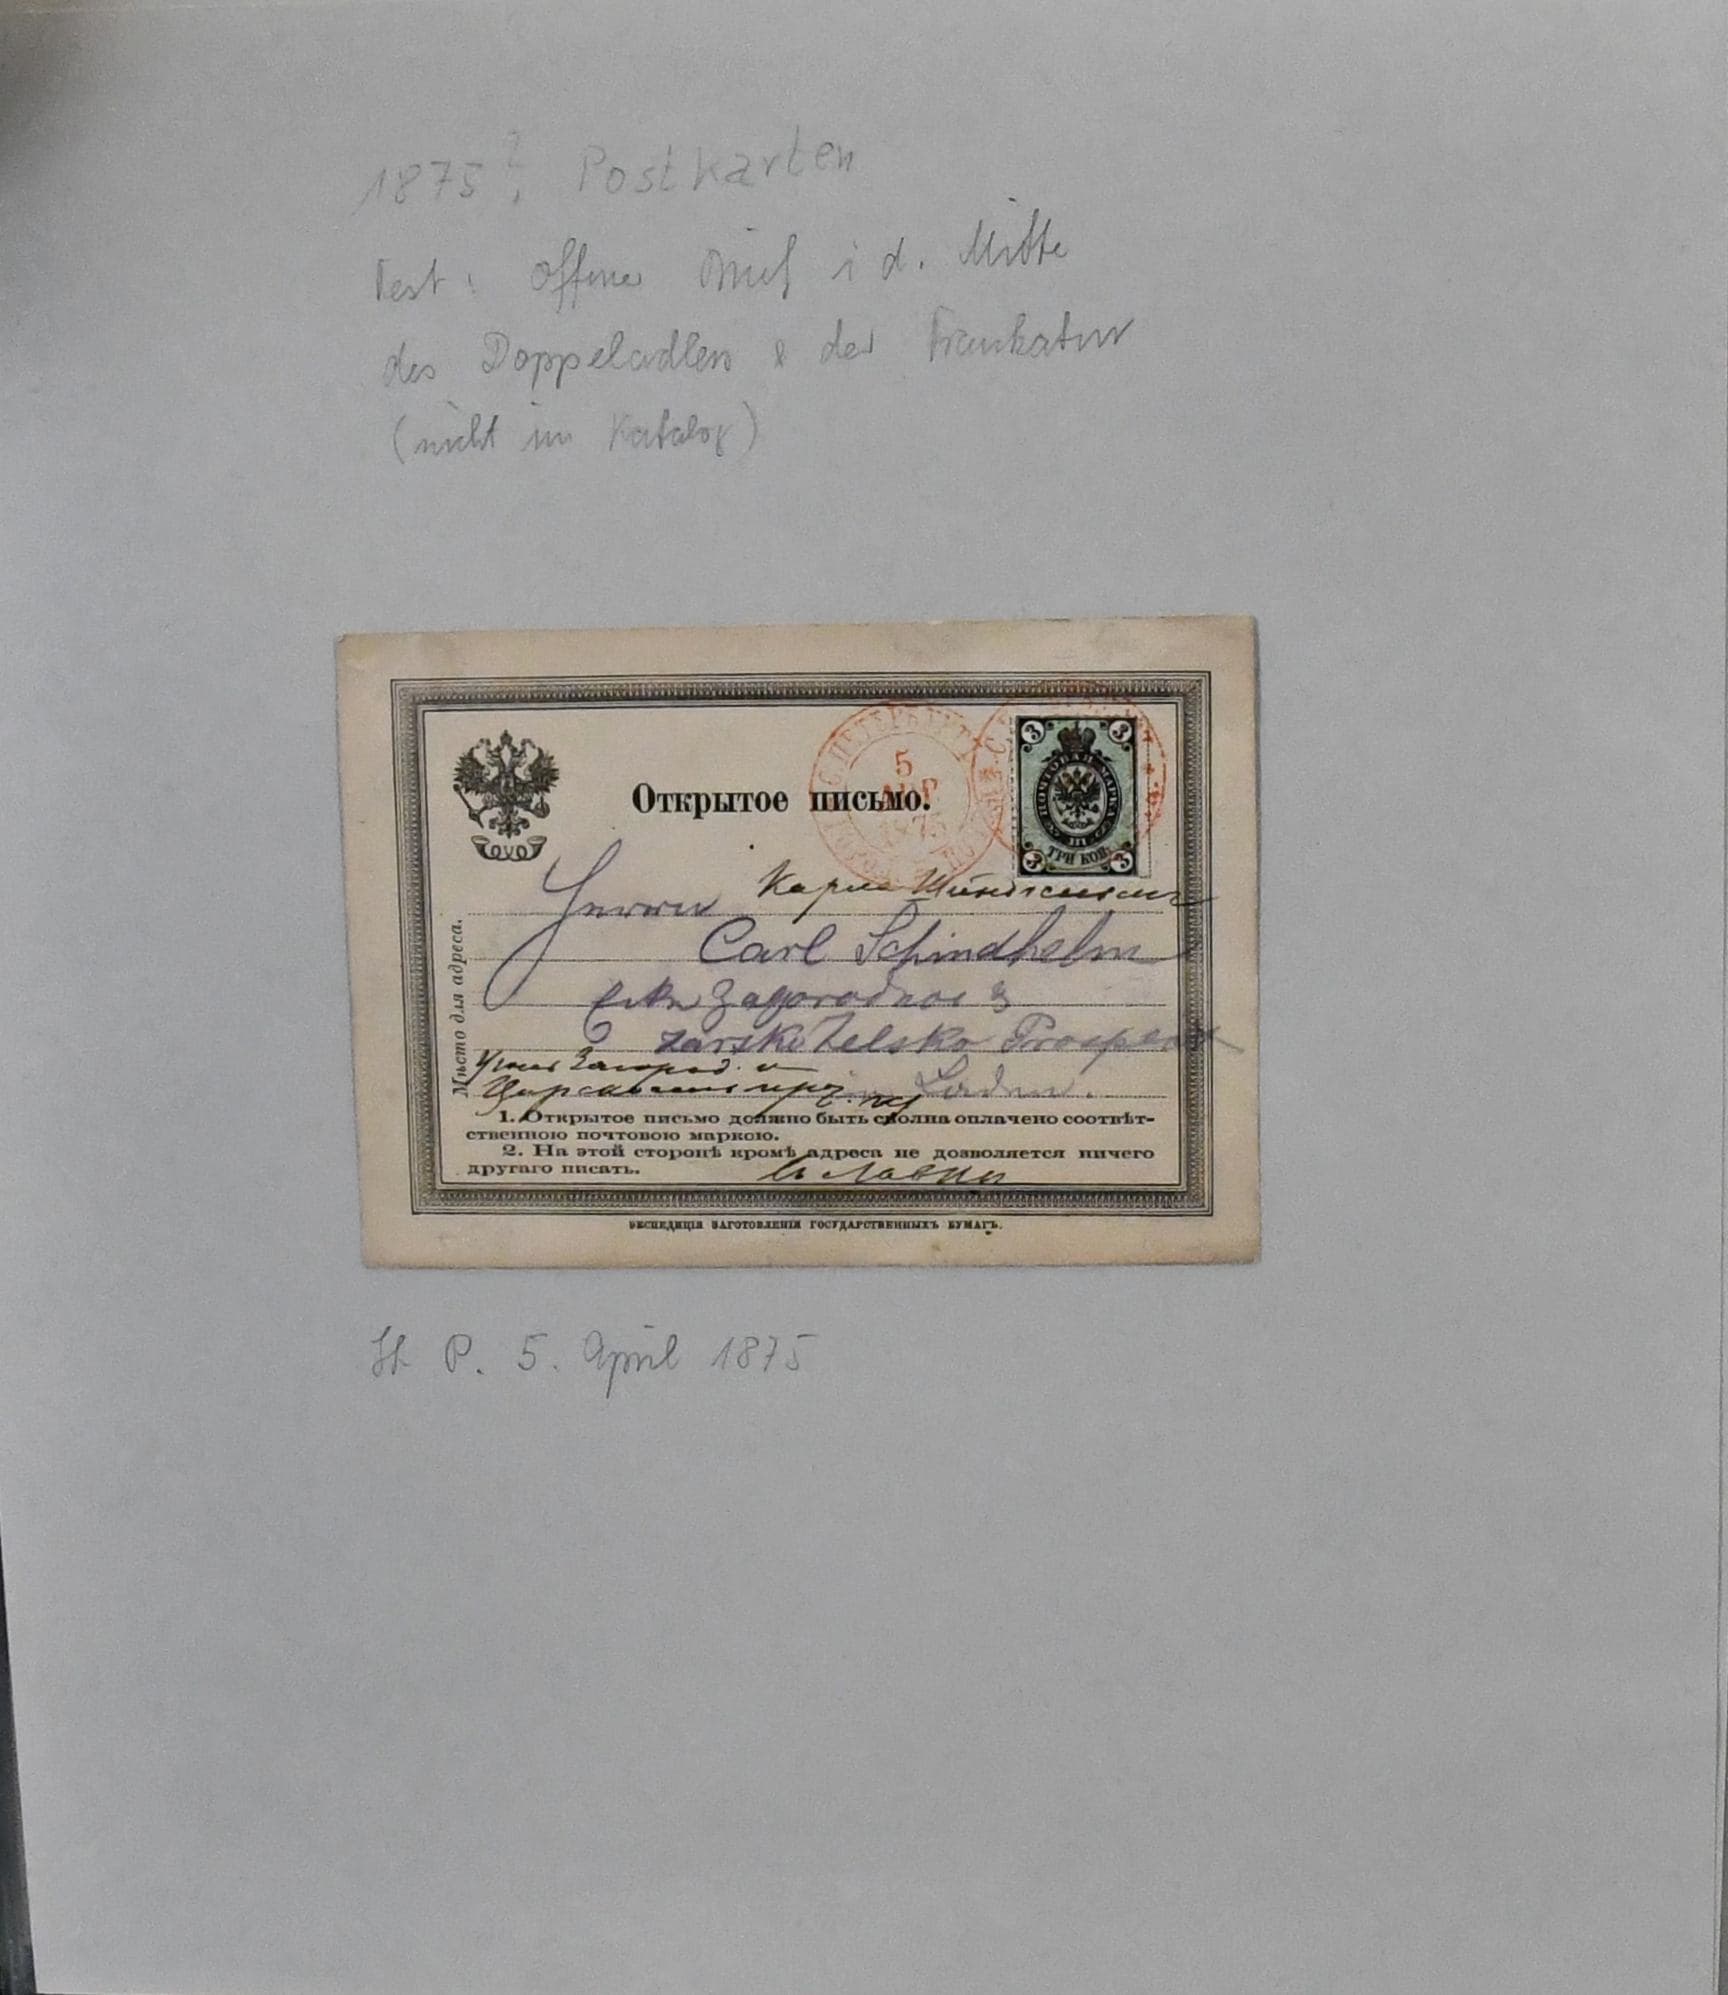 1875?, Postkarten
Text: Offener Brief i d. Mitte
des Doppeladlers & der Frankatur
(nicht im Katalog)
С.ПЕТЕРБУРГЪ
5
АПР
1875
3 3
ПОЧТОВАЯ МАРКА
ТРИ КОП.
3 3
Открытое письмо.
Карлу
Herrn
Carl Schindhelm
Ecke Zagorodnoi &
Zarsko Zelsko Prospect
Laden.
Уголъ Загород. и
Царскосельск. пр.
Мѣсто для адреса.
1. Открытое письмо должно быть сполна оплачено соотвѣт-
ственною почтовою маркою.
2. На этой сторонѣ кромѣ адреса не дозволяется ничего
другаго писать.
въ лавку
ЭКСПЕДИЦІЯ ЗАГОТОВЛЕНІЯ ГОСУДАРСТВЕННЫХЪ БУМАГЪ.
St P. 5. April 1875